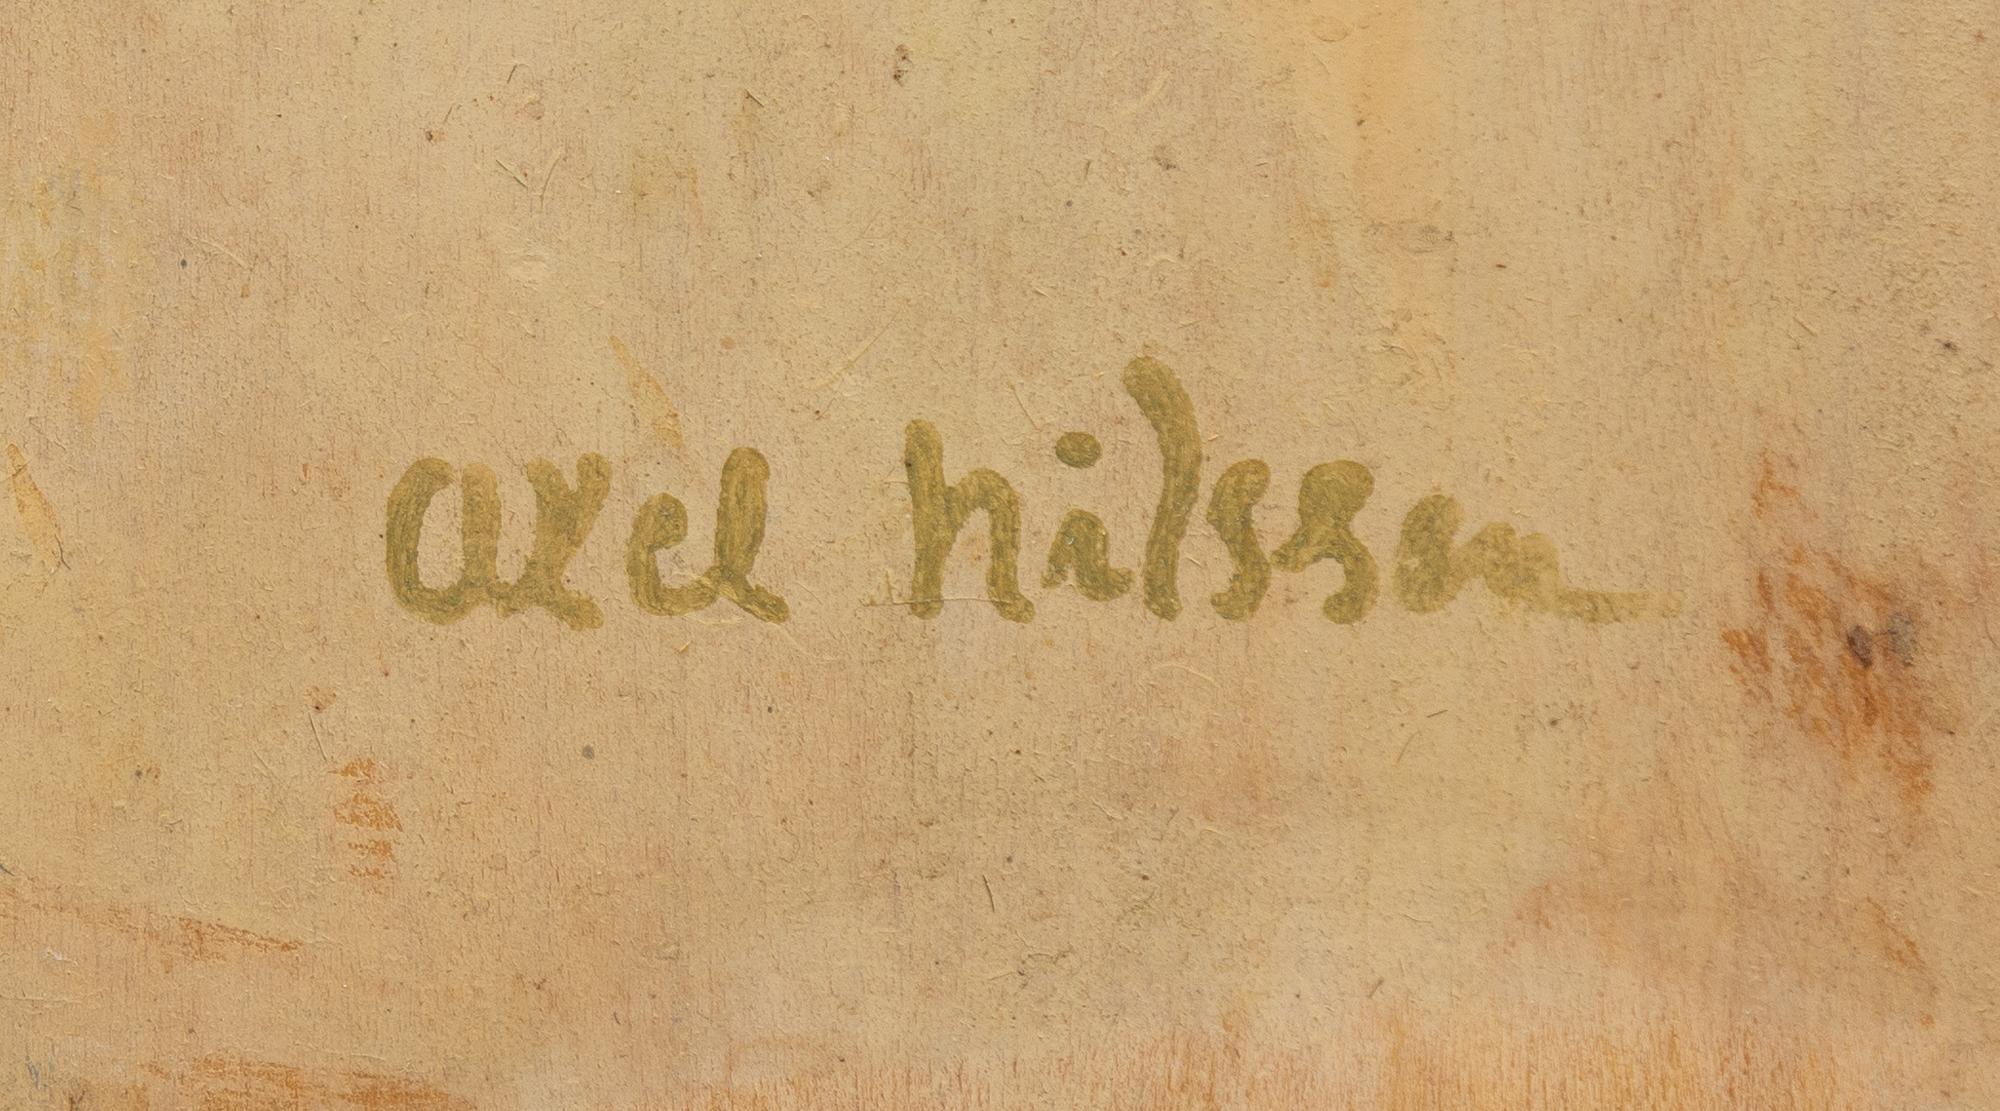 axel nilsson